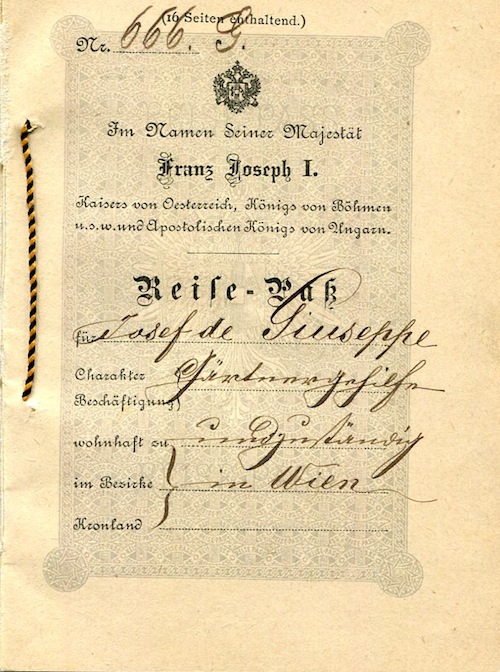 (16 Seiten enthaltend.)
Nr. 666. G.
Im Namen Seiner Majestät
Franz Joseph I.
Kaisers von Oesterreich, Königs von Böhmen
u.s.w. und Apostolischen Königs von Ungarn.
Reise-Paß
für Josef de Giuseppe
Charakter Gärtnergehilfe
Beschäftigung)
wohnhaft zu und zuständig
im Bezirke in Wien
Kronland